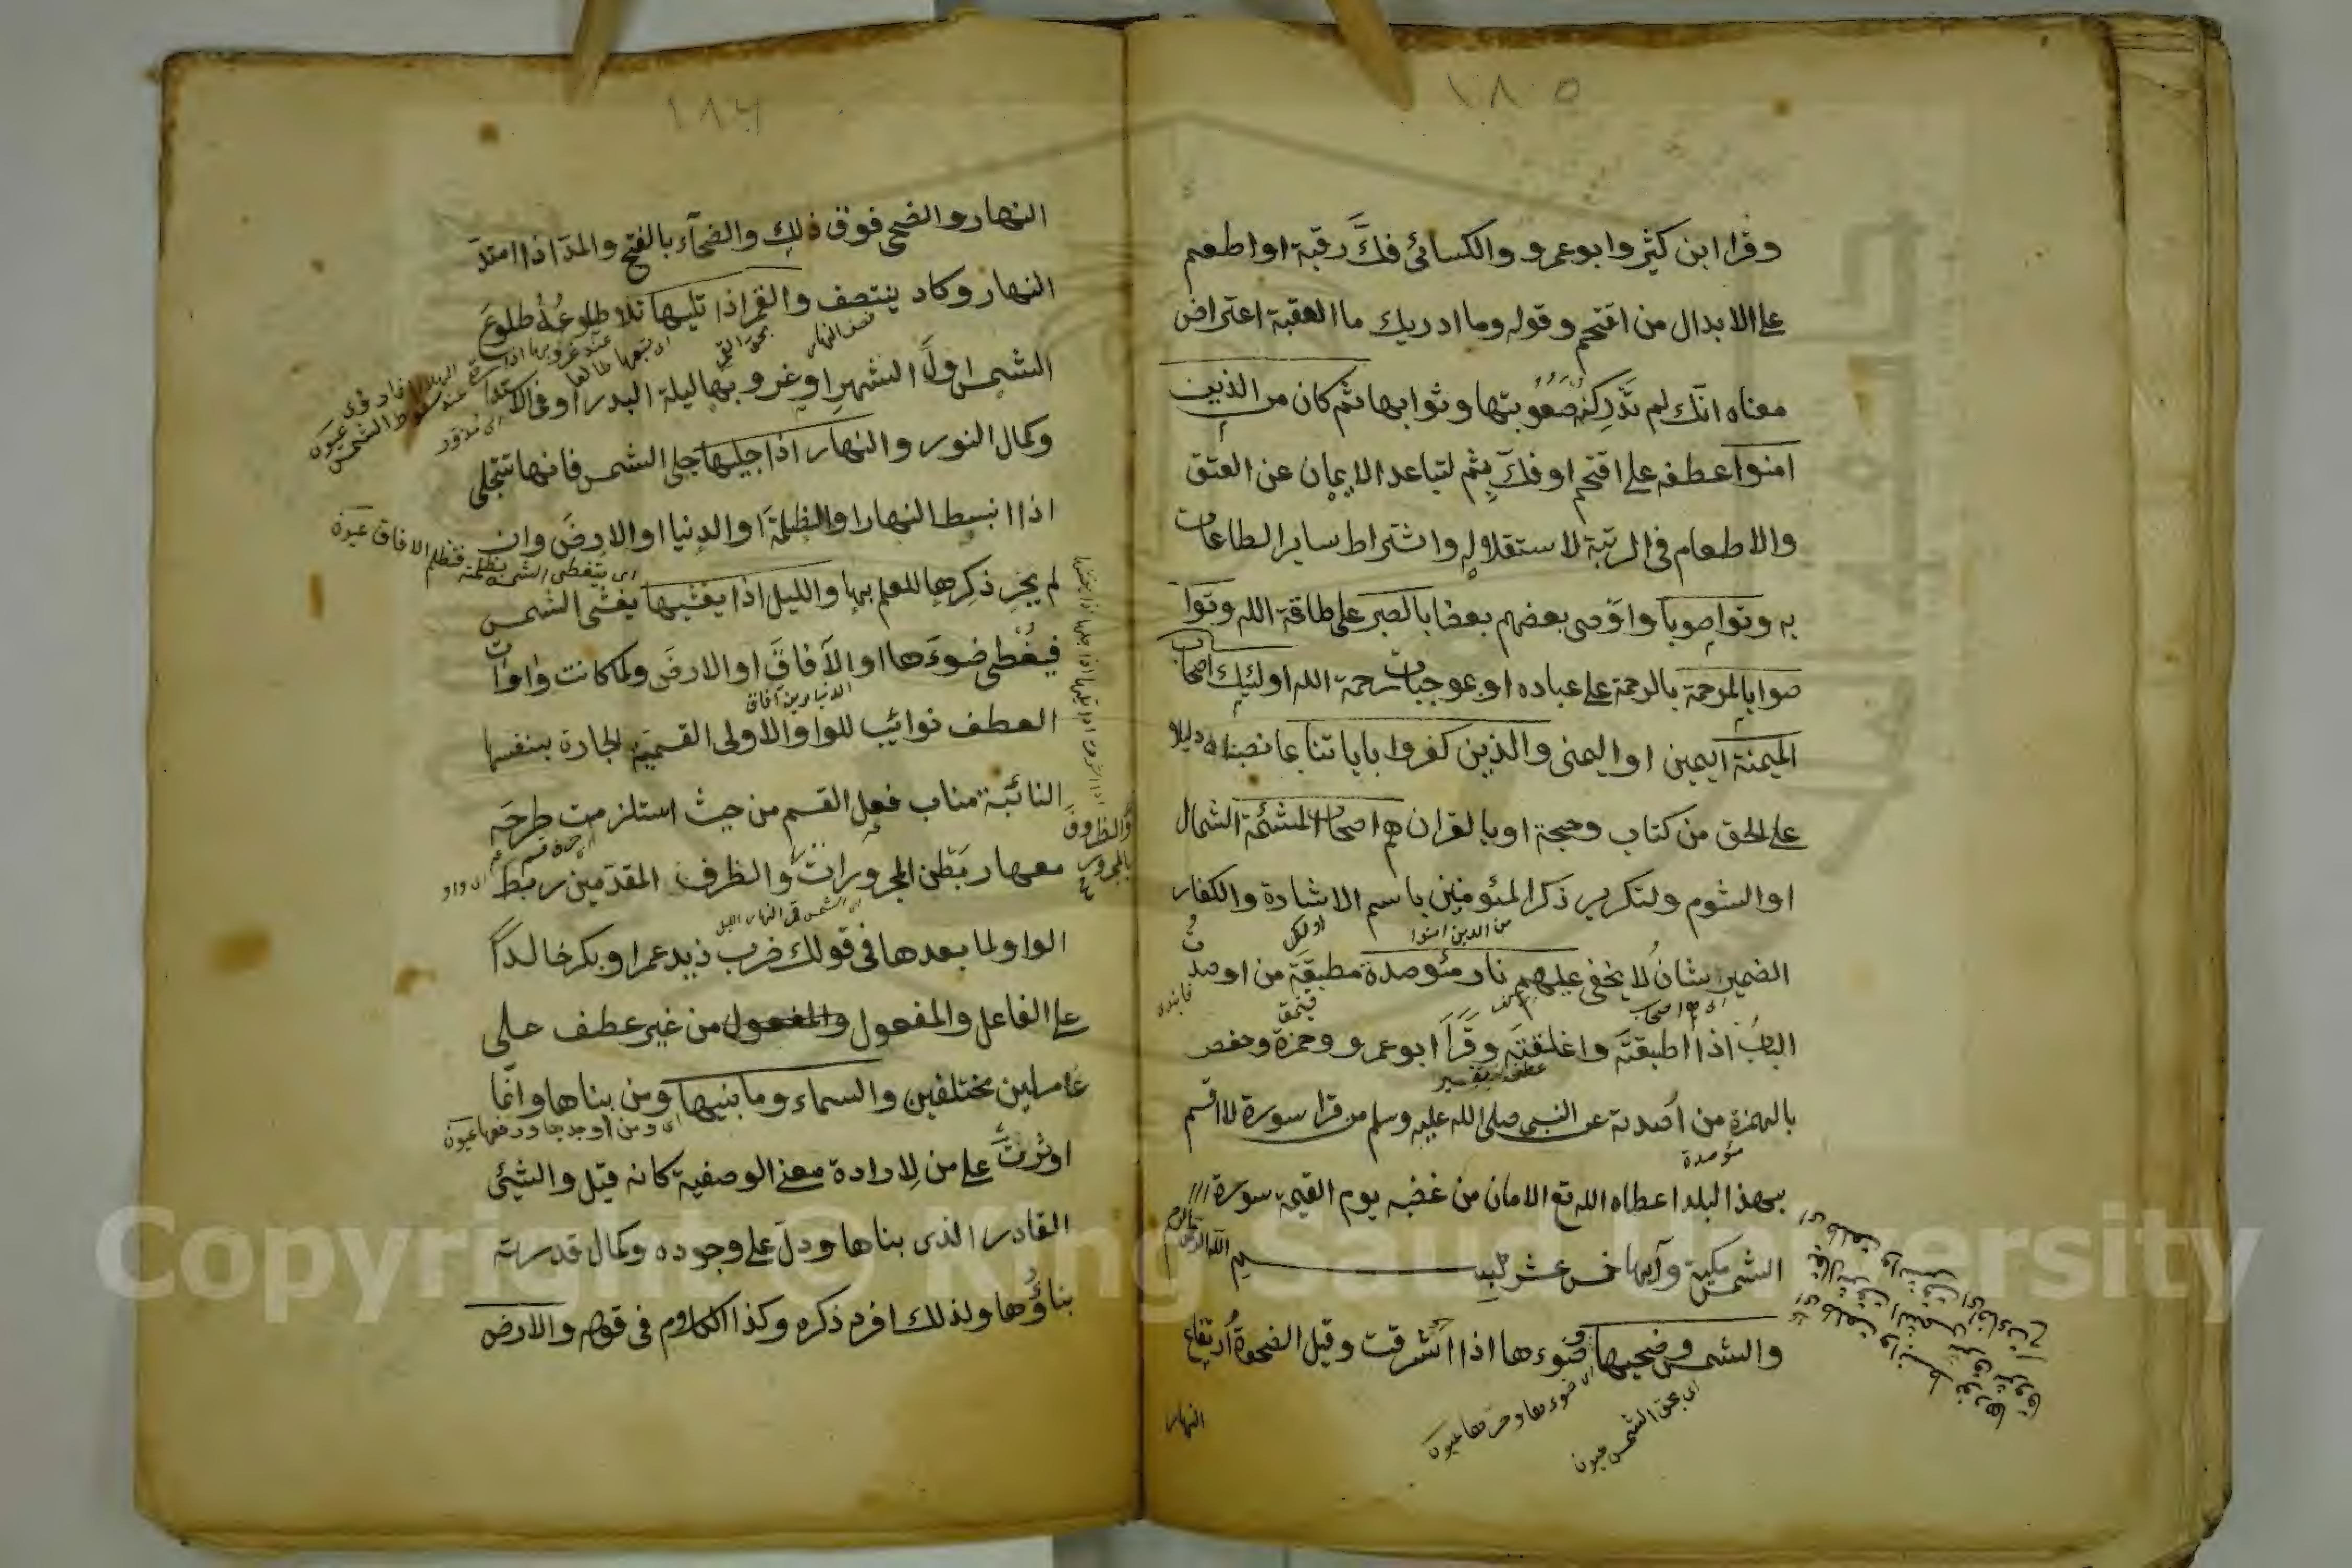 ١٨٥
وقرا ابن كثير وابوعمرو والكسائى فكَّ رقبة او اطعم
على الابدال من اقتحم وقوله وما ادريك ما العقبة اعتراض
معناه انك لم تدركنه صعوبتها وثوابها ثم كان من الذين
امنوا عطفه على اقتحم او فكّ بثم لتباعد الايمان عن العتق
والاطعام فى الرتبة لاستقلاله واشتراط ساير الطاعات
به وتواصوا واوصى بعضهم بعضا بالصبر على طاقة الله وتوا
صوا بالمرحمة بالرحمة على عباده او بموجبات رحمة الله اولئيك اصحاب
الميمنة اليمين او اليمنى والذين كفروا باياتنا بما نصبناه دليلا
على الحق من كتاب وحجة او بالقران هم اصحاب المشئمة الشمال
او الشوم ولتكرير ذكر المئومنين باسم الاشادة والكفار
من الذين امنوا
الضمير شان لا يخفى عليهم نار مئوصدة مطبقة من اوصدت
الباب اذا اطبقته واغلقته وقرا ابوعمرو وحمزة وحفص
بالهمزة من اصدته عن النبى صلى الله عليه وسلم من قرا سورة لا اقسم
مؤصدة
بهذا البلد اعطاه الله تع الامان من غضبه يوم القيمة سورة
الشمس مكية وآيها خمس عشر بسم الله الرحمن الرحيم
والشمس وضحيها وضوءها اذا اشرقت وقيل الضحوة ارتفاع
اى ضوءها وحرها عيون
اى بحق الشمس عيون
النهار
١٨٤
النهار والضحى فوق ذلك والضحآء بالفتح والمد اذا امتدّ
النهار وكاد ينتصف والقمر اذا تليها تلا طلوعه طلوع
نصف النهار
الشمس اول الشهر او غروبها ليلة البدر او فى الاستدارة
وكمال النور والنهار اذا جليها جلى الشمس فانها تتجلى
اذا انبسط النهار او الظلمة او الدنيا او الارض وان
لم يجر ذكرها للعلم بها والليل اذا يغشيها يغشى الشمس
فيغطى ضوءها او الآفاق او الارض ولما كانت واوات
العطف نوائب للواو الاولى القسمية الجارة بنفسها
النائبة مناب فعل القسم من حيث استلزمت طرحه
معها ربطن المجرورات والظرف المقدمين ربط
والظروف
بالمجرور
الواو لما بعدها فى قولك ضرب زيد عمرا وبكر خالدًا
على الفاعل والمفعول والمفعول من غير عطف على
عاملين مختلفين والسماء وما بنيها ومن بناها وانما
اى ومن اوجدها ورفعها عيون
اوثرت على من لارادة معنى الوصفية كانه قيل والشيئى
القادر الذى بناها ودل على وجوده وكمال قدرته
بناؤها ولذلك افرد ذكره وكذا الكلام فى قوله والارض
Copyright © King Saud University